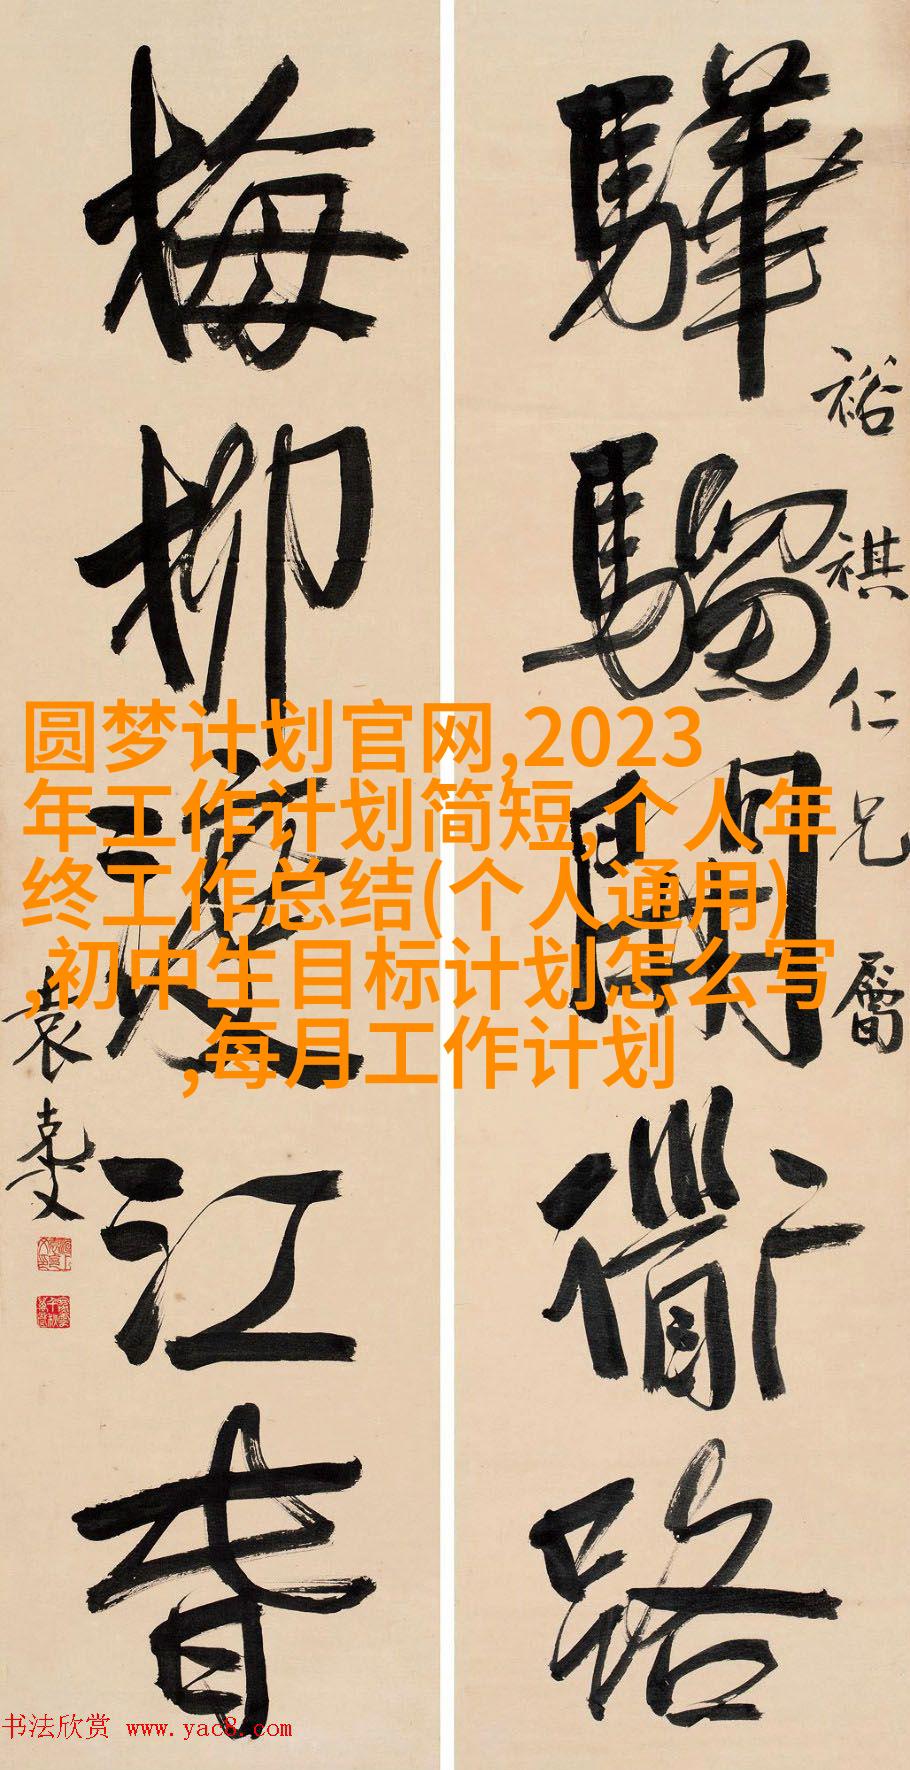 驊騮開衜路
裕祺仁兄屬
梅柳渡江春
袁克文
圆梦计划官网,2023
年工作计划简短,个人年
终工作总结(个人通用)
,初中生目标计划怎么写
,每月工作计划
书法欣赏 www.yac8.com